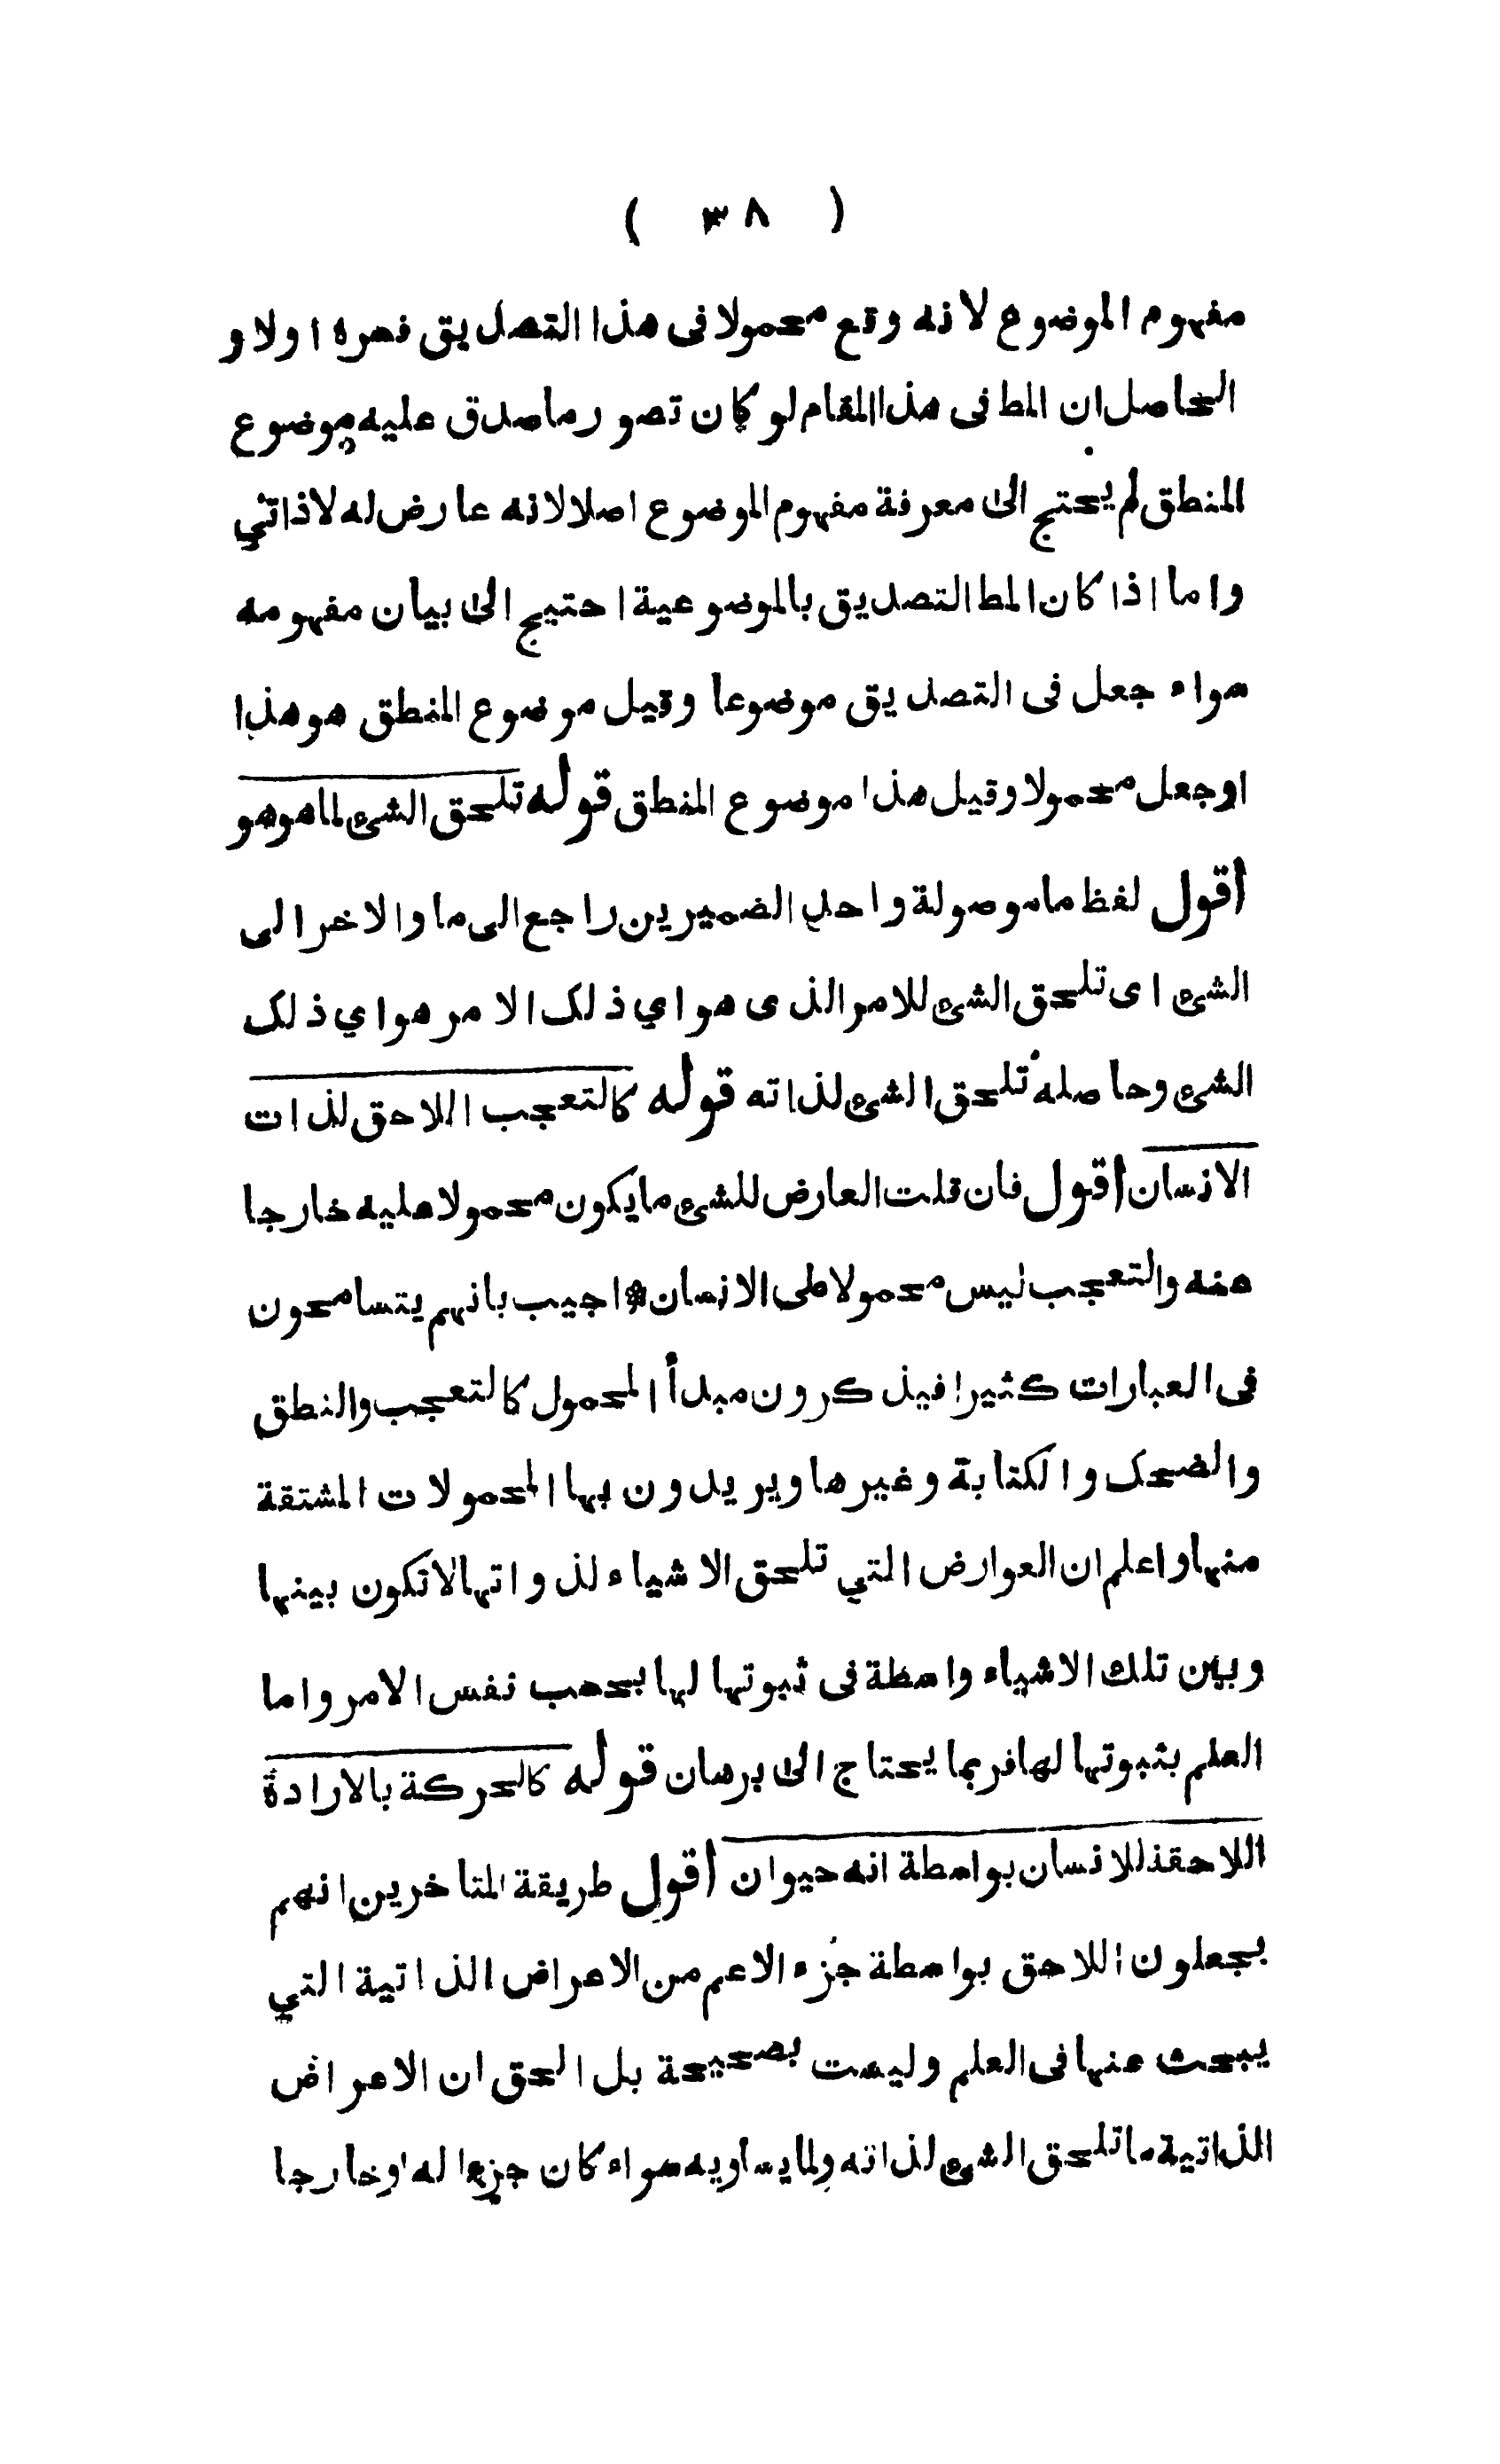 ( ٣٨ )
مفهوم الموضوع لانه وقع محمولا فى هذا التصديق فسره اولا و
الحاصل ان المط فى هذا المقام لو كان تصور ما صدق عليه موضوع
المنطق لم يحتج الى معرفة مفهوم الموضوع اصلا لانه عارض له لا ذاتي
واما اذا كان المط التصديق بالموضوعية احتيج الى بيان مفهومه
سواء جعل فى التصديق موضوعا وقيل موضوع المنطق هو هذا
او جعل محمولا وقيل هذا موضوع المنطق قوله تلحق الشئ لما هو هو
أقول لفظ ما موصولة واحد الضميرين راجع الى ما والاخر الى
الشئ اى تلحق الشئ للامر الذى هو اي ذلك الامر هو اي ذلك
الشئ وحاصله تلحق الشئ لذاته قوله كالتعجب اللاحق لذات
الانسان أقول فان قلت العارض للشئ ما يكون محمولا عليه خارجا
عنه والتعجب ليس محمولا على الانسان * اجيب بانهم يتسامحون
فى العبارات كثيرا فيذكرون مبدأ المحمول كالتعجب والنطق
والضحك والكتابة وغيرها ويريدون بها المحمولات المشتقة
منها واعلم ان العوارض التي تلحق الاشياء لذواتها لا تكون بينها
وبين تلك الاشياء واسطة فى ثبوتها لها بحسب نفس الامر واما
العلم بثبوتها لها فربما يحتاج الى برهان قوله كالحركة بالارادة
اللاحقة للانسان بواسطة انه حيوان أقول طريقة المتاخرين انهم
يجعلون اللاحق بواسطة جزء الاعم من الاعراض الذاتية التي
يبحث عنها فى العلم وليست بصحيحة بل الحق ان الاعراض
الذاتية ما تلحق الشئ لذاته ولما يساويه سواء كان جزءا له او خارجا